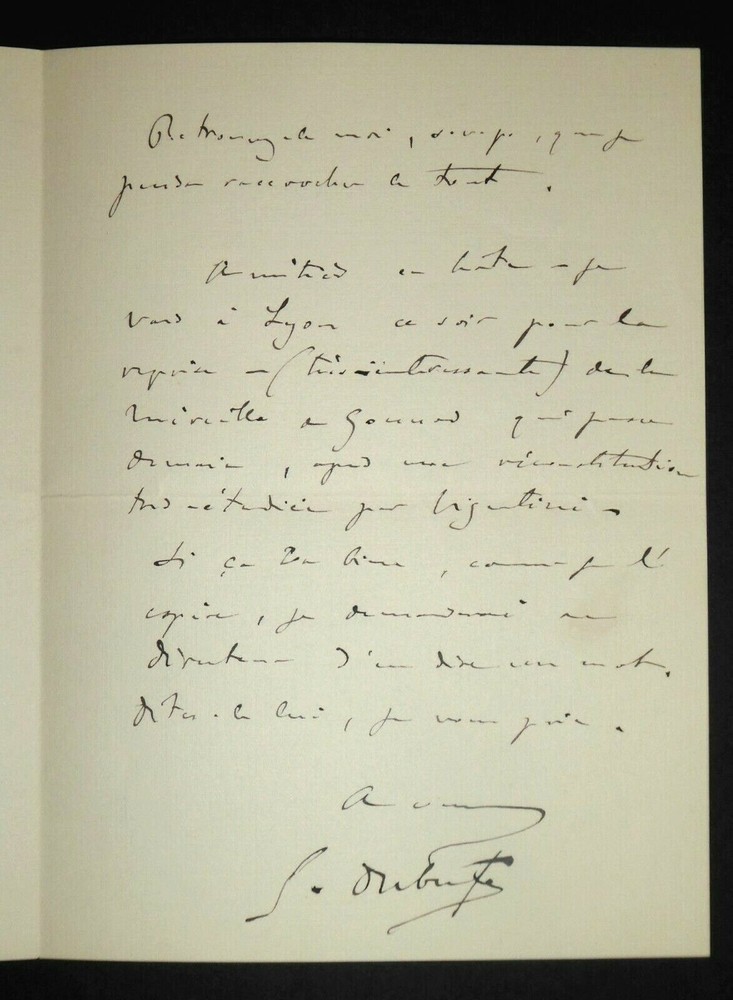 Retrouvez le moi, , que je
puisse raccrocher le tout.
Amitiés en hâte - je
vais à Lyon ce soir pour la
reprise - (très-intéressante) de la
Mireille de Gounod qui passe
demain, après une réconstitution
très-étudiée par Vizentini -
Si ça va bien, comme je l'
espère, je demanderai au
directeur d'en dire un mot.
Dites-le lui, je vous prie.
A vous
G. Dubufe